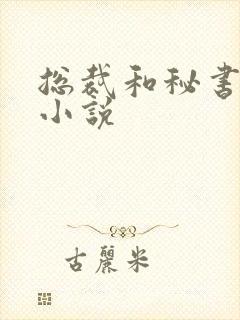 总裁和秘书
小说
古丽米